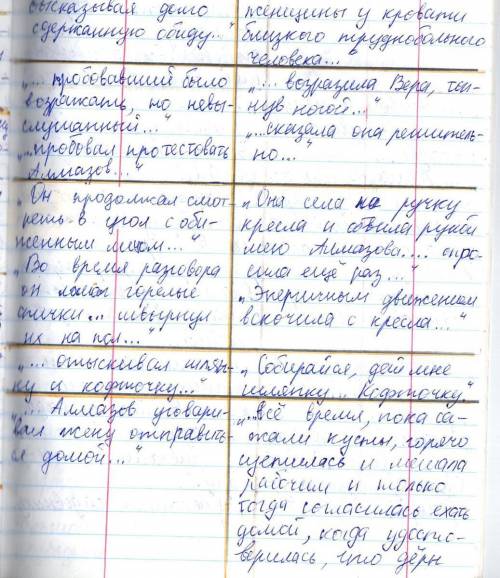 высказывая демо
сдержанную обиду..."
"... пробовавший было
возражать, но невы-
слушанный..."
"...пробовал протестовать
Алмазов..."
"Он продолжал смот-
реть в угол с оби-
женным лицом..."
"Во время разговора
он ломал горелые
спички... швырнул
их на пол..."
"... отыскивал шляп-
ку и кофточку..."
"... Алмазов уговари-
вал жену отправить-
ся домой..."
женщины у кровати
близкого труднобольного
человека..."
"... возразила Вера, топ-
нув ногой..."
"...сказала она решитель-
но..."
"Она села на ручку
кресла и обвила рукой
шею Алмазова.... спро-
сила ещё раз..."
"Энергичным движением
вскочила с кресла..."
"Собирайся, дай мне
шляпку.. Кофточку."
"...Всё время, пока са-
жали кусты, горячо
суетилась и мешала
рабочим и только
тогда согласилась ехать
домой, когда удосто-
верилась, что дёрн